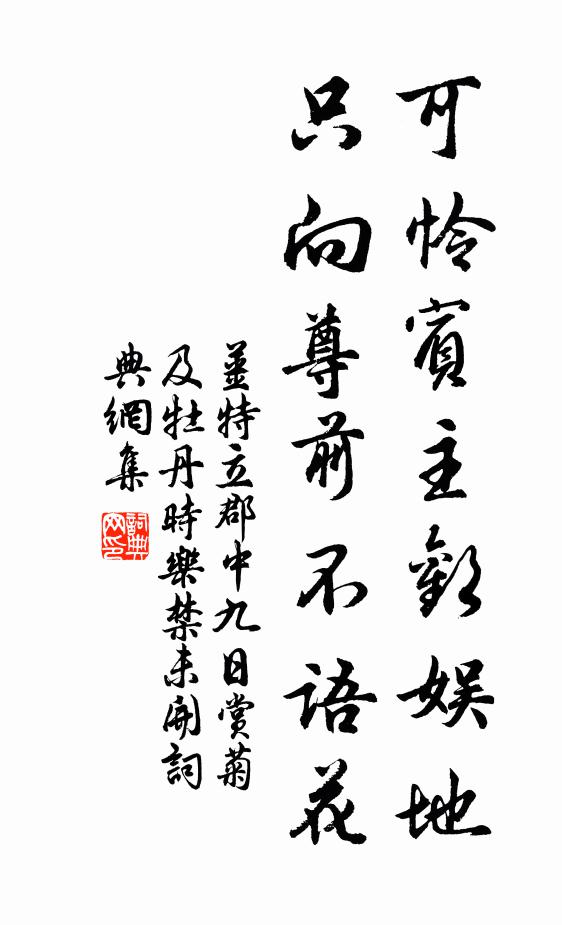 可憐賓主歡娱地
只向尊前不語花
姜特立郡中九日賞菊
及牡丹時樂禁未開詞
典網集
詞典
网印